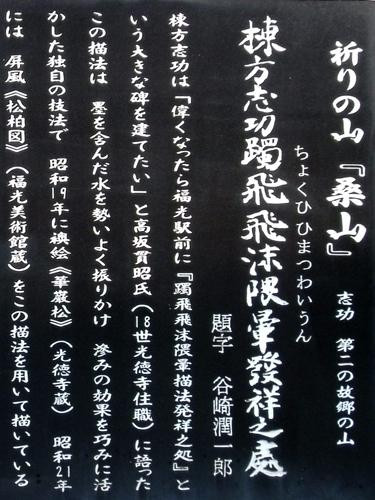 祈りの山『桑山』
志功 第二の故郷の山
ちょくひ ひまつわいうん
棟方志功躅飛飛沫隈暈發祥之處
題字 谷崎潤一郎
棟方志功は「偉くなったら福光駅前に『躅飛飛沫隈暈描法発祥之処』と
いう大きな碑を建てたい」と高坂貫昭氏(18世光徳寺住職)に語った
この描法は 墨を含んだ水を勢いよく振りかけ 滲みの効果を巧みに活
かした独自の技法で 昭和19年に襖絵《華厳松》(光徳寺蔵) 昭和21年
には 屏風《松柏図》(福光美術館蔵)をこの描法を用いて描いている